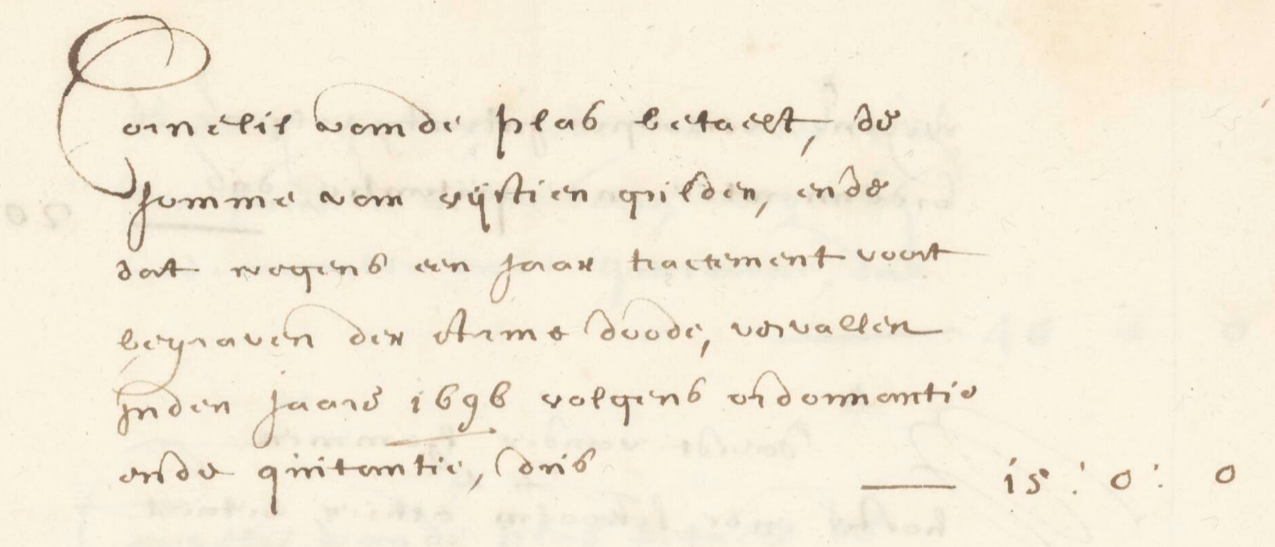 Cornelis vande Plas betaelt, de
somme van vijftien gulden, ende
dat wegens een Jaar tractement voort
begraven der Arme doode, vervallen
Inden Jaare 1696 volgens ordonnantie
ende quitantie, dus — 15 : 0 : 0